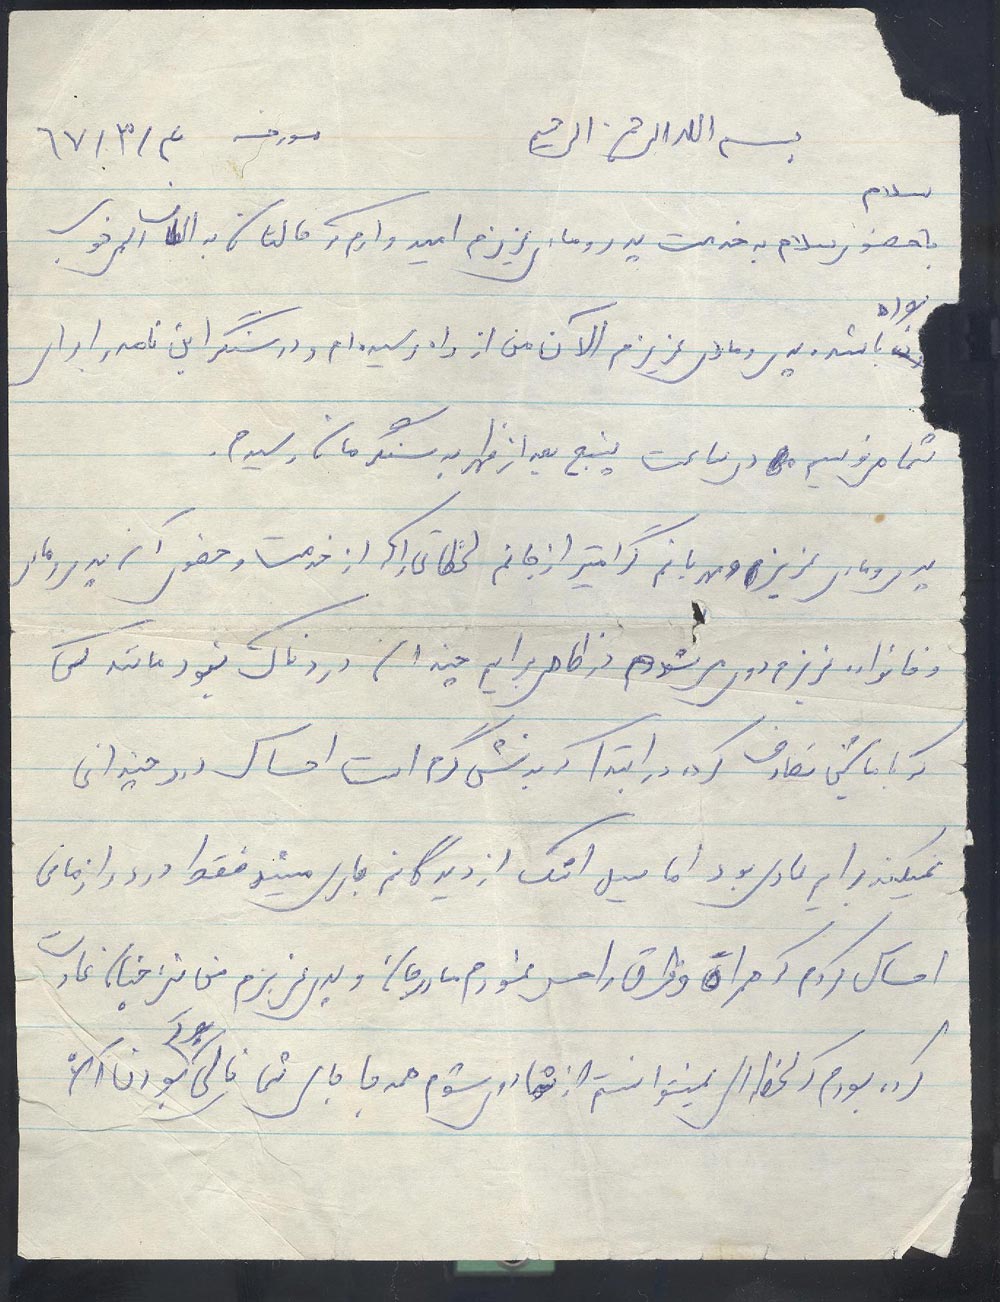 بسم الله الرحمن الرحیم مورخه ۶۷/۳/۴
سلام
با حضور سلام به خدمت پدر و مادر عزیزم امیدوارم که حالتان به الطاف الهی خوب
بوده
باشد. پدر و مادر عزیزم الآن من از راه رسیده‌ام و در سنگر این نامه را برای
شما می‌نویسم در ساعت پنج بعد از ظهر به سنگرمان رسیدم.
پدر و مادر عزیز و مهربانم گرامیتر از جانم لحظاتی را که از خدمت و حضور آن پدر و مادر
و خانواده عزیزم دور می‌شدم در ظاهر برایم چندان دردناک نبود مانند کسی
که با ماشینی تصادف کرده در ابتدا که بدنش گرم است احساس درد چندانی
نمیکند برایم عادی بود اما سیل اشک از دیدگانم جاری میشد فقط درد را زمانی
احساس کردم که فراق را حس نمودم مادر جان و پدر عزیزم من نیز چنان عادت
کرده بودم که لحظه‌ای نمیتوانستم از شما دور شوم همه جا جای شما خالی بود